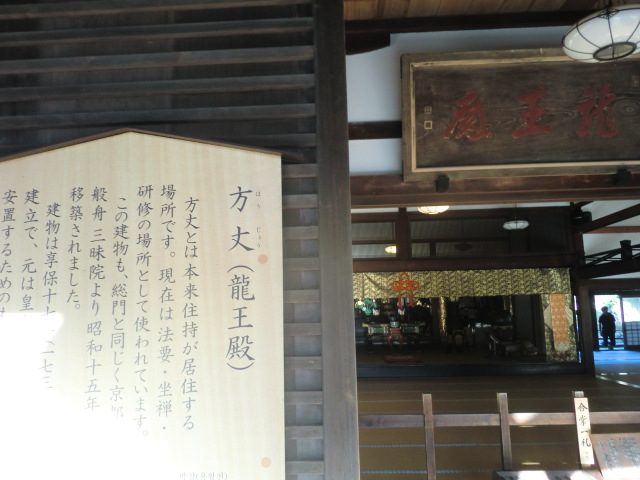 龍王殿
方丈(龍王殿)
ほう じょう
方丈とは本来住持が居住する
場所です。現在は法要・坐禅・
研修の場所として使われています。
この建物も、総門と同じく京都
般舟三昧院より昭和十五年
移築されました。
建物は享保十七
建立で、元は皇
安置するための
방장(용왕전)
合掌一礼